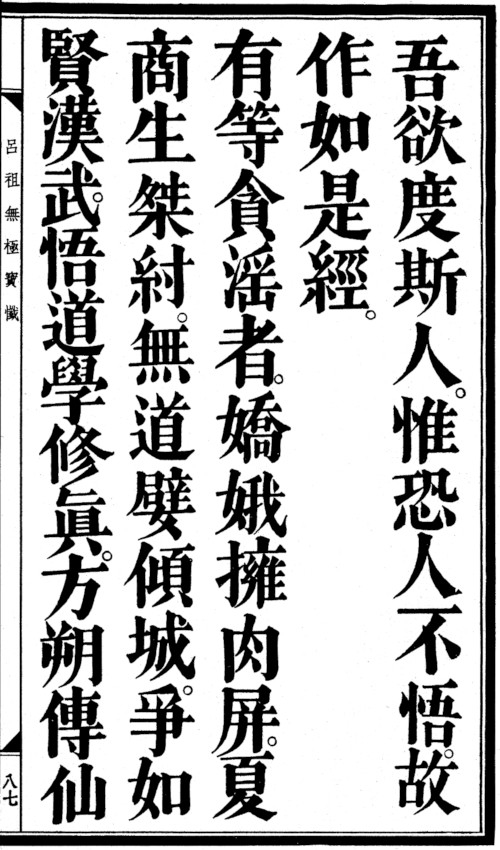 吾欲度斯人。惟恐人不悟。故
作如是經。
有等貪淫者。嬌娥擁肉屏。夏
商生桀紂。無道嬖傾城。爭如
賢漢武。悟道學修眞。方朔傳仙
呂祖無極寶懺
八七